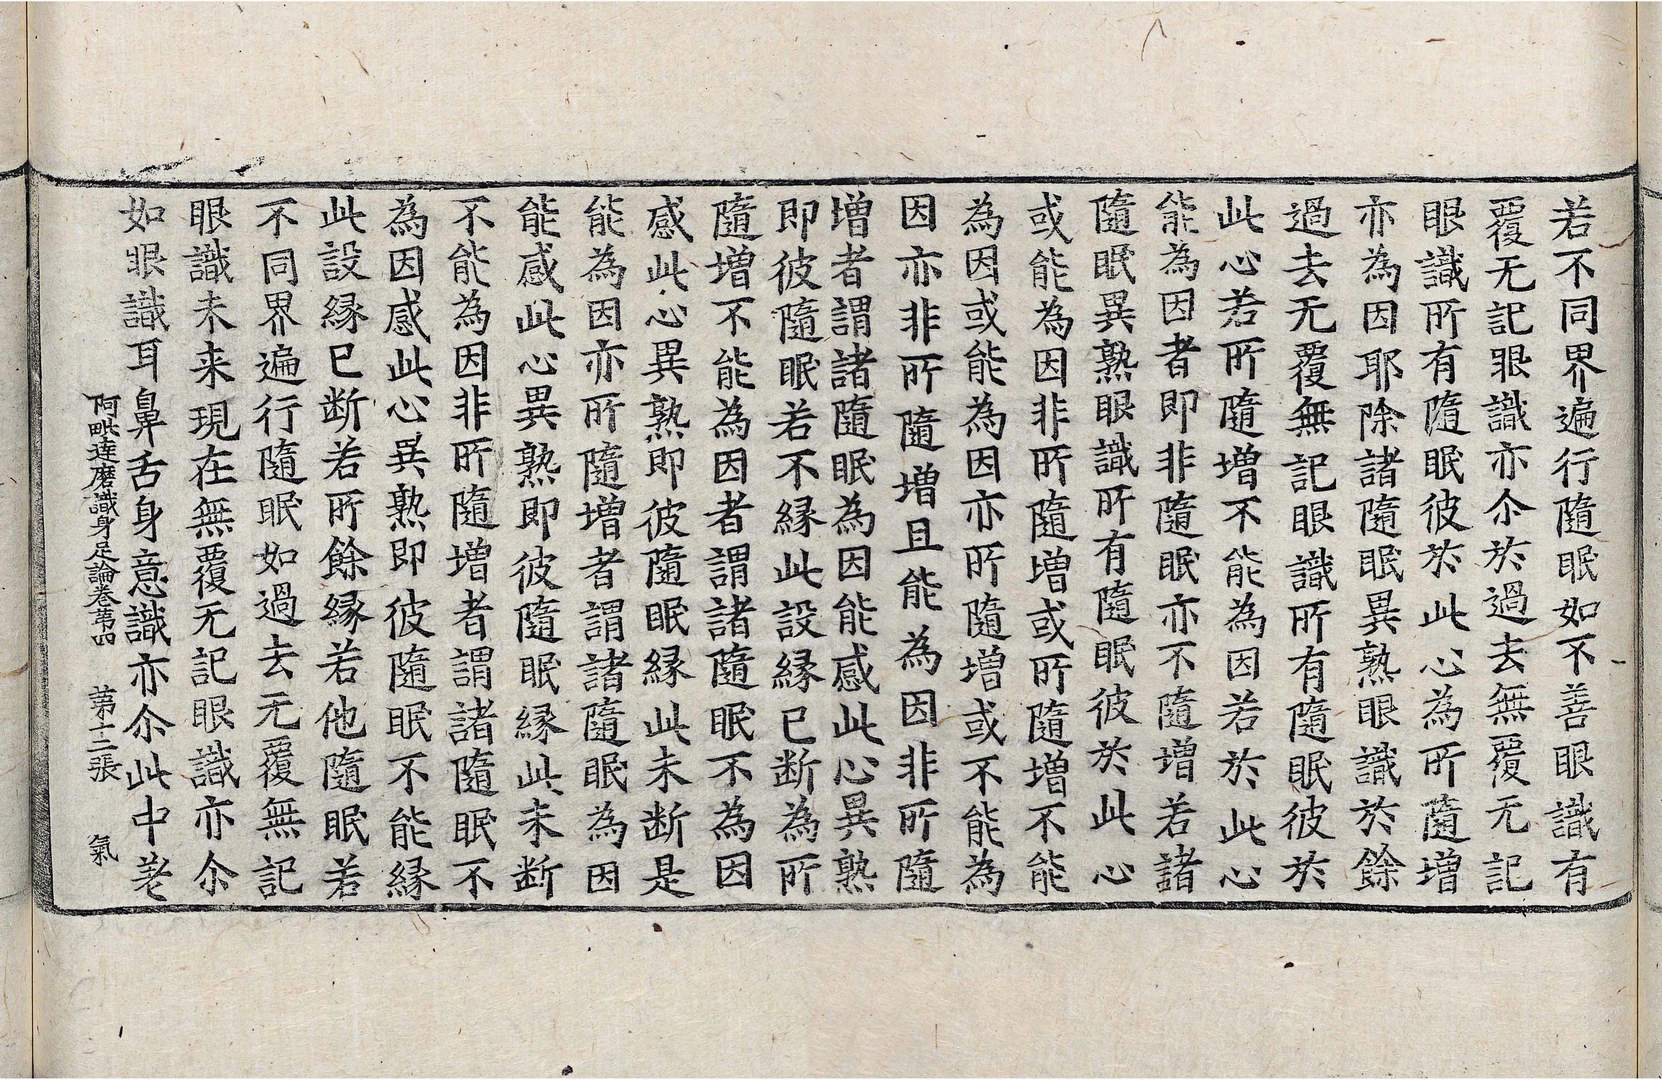 若不同界遍行隨眠如不善眼識有
覆无記眼識亦尒於過去無覆无記
眼識所有隨眠彼於此心為所隨增
亦為因耶除諸隨眠異熟眼識於餘
過去无覆無記眼識所有隨眠彼於
此心若所隨增不能為因若於此心
能為因者即非隨眠亦不隨增若諸
隨眠異熟眼識所有隨眠彼於此心
或能為因非所隨增或所隨增不能
為因或能為因亦所隨增或不能為
因亦非所隨增且能為因非所隨
增者謂諸隨眠為因能感此心異熟
即彼隨眠若不縁此設縁已断為所
隨増不能為因者謂諸隨眠不為因
感此心異熟即彼隨眠縁此未断是
能為因亦所隨增者謂諸隨眠為因
能感此心異熟即彼隨眠縁此未断
不能為因非所隨增者謂諸隨眠不
為因感此心異熟即彼隨眠不能縁
此設縁已断若所餘縁若他隨眠若
不同界遍行隨眠如過去无覆無記
眼識未来現在無覆无記眼識亦尒
如眼識耳鼻舌身意識亦尒此中差
阿毗達磨識身足論卷第四 第十二張 氣